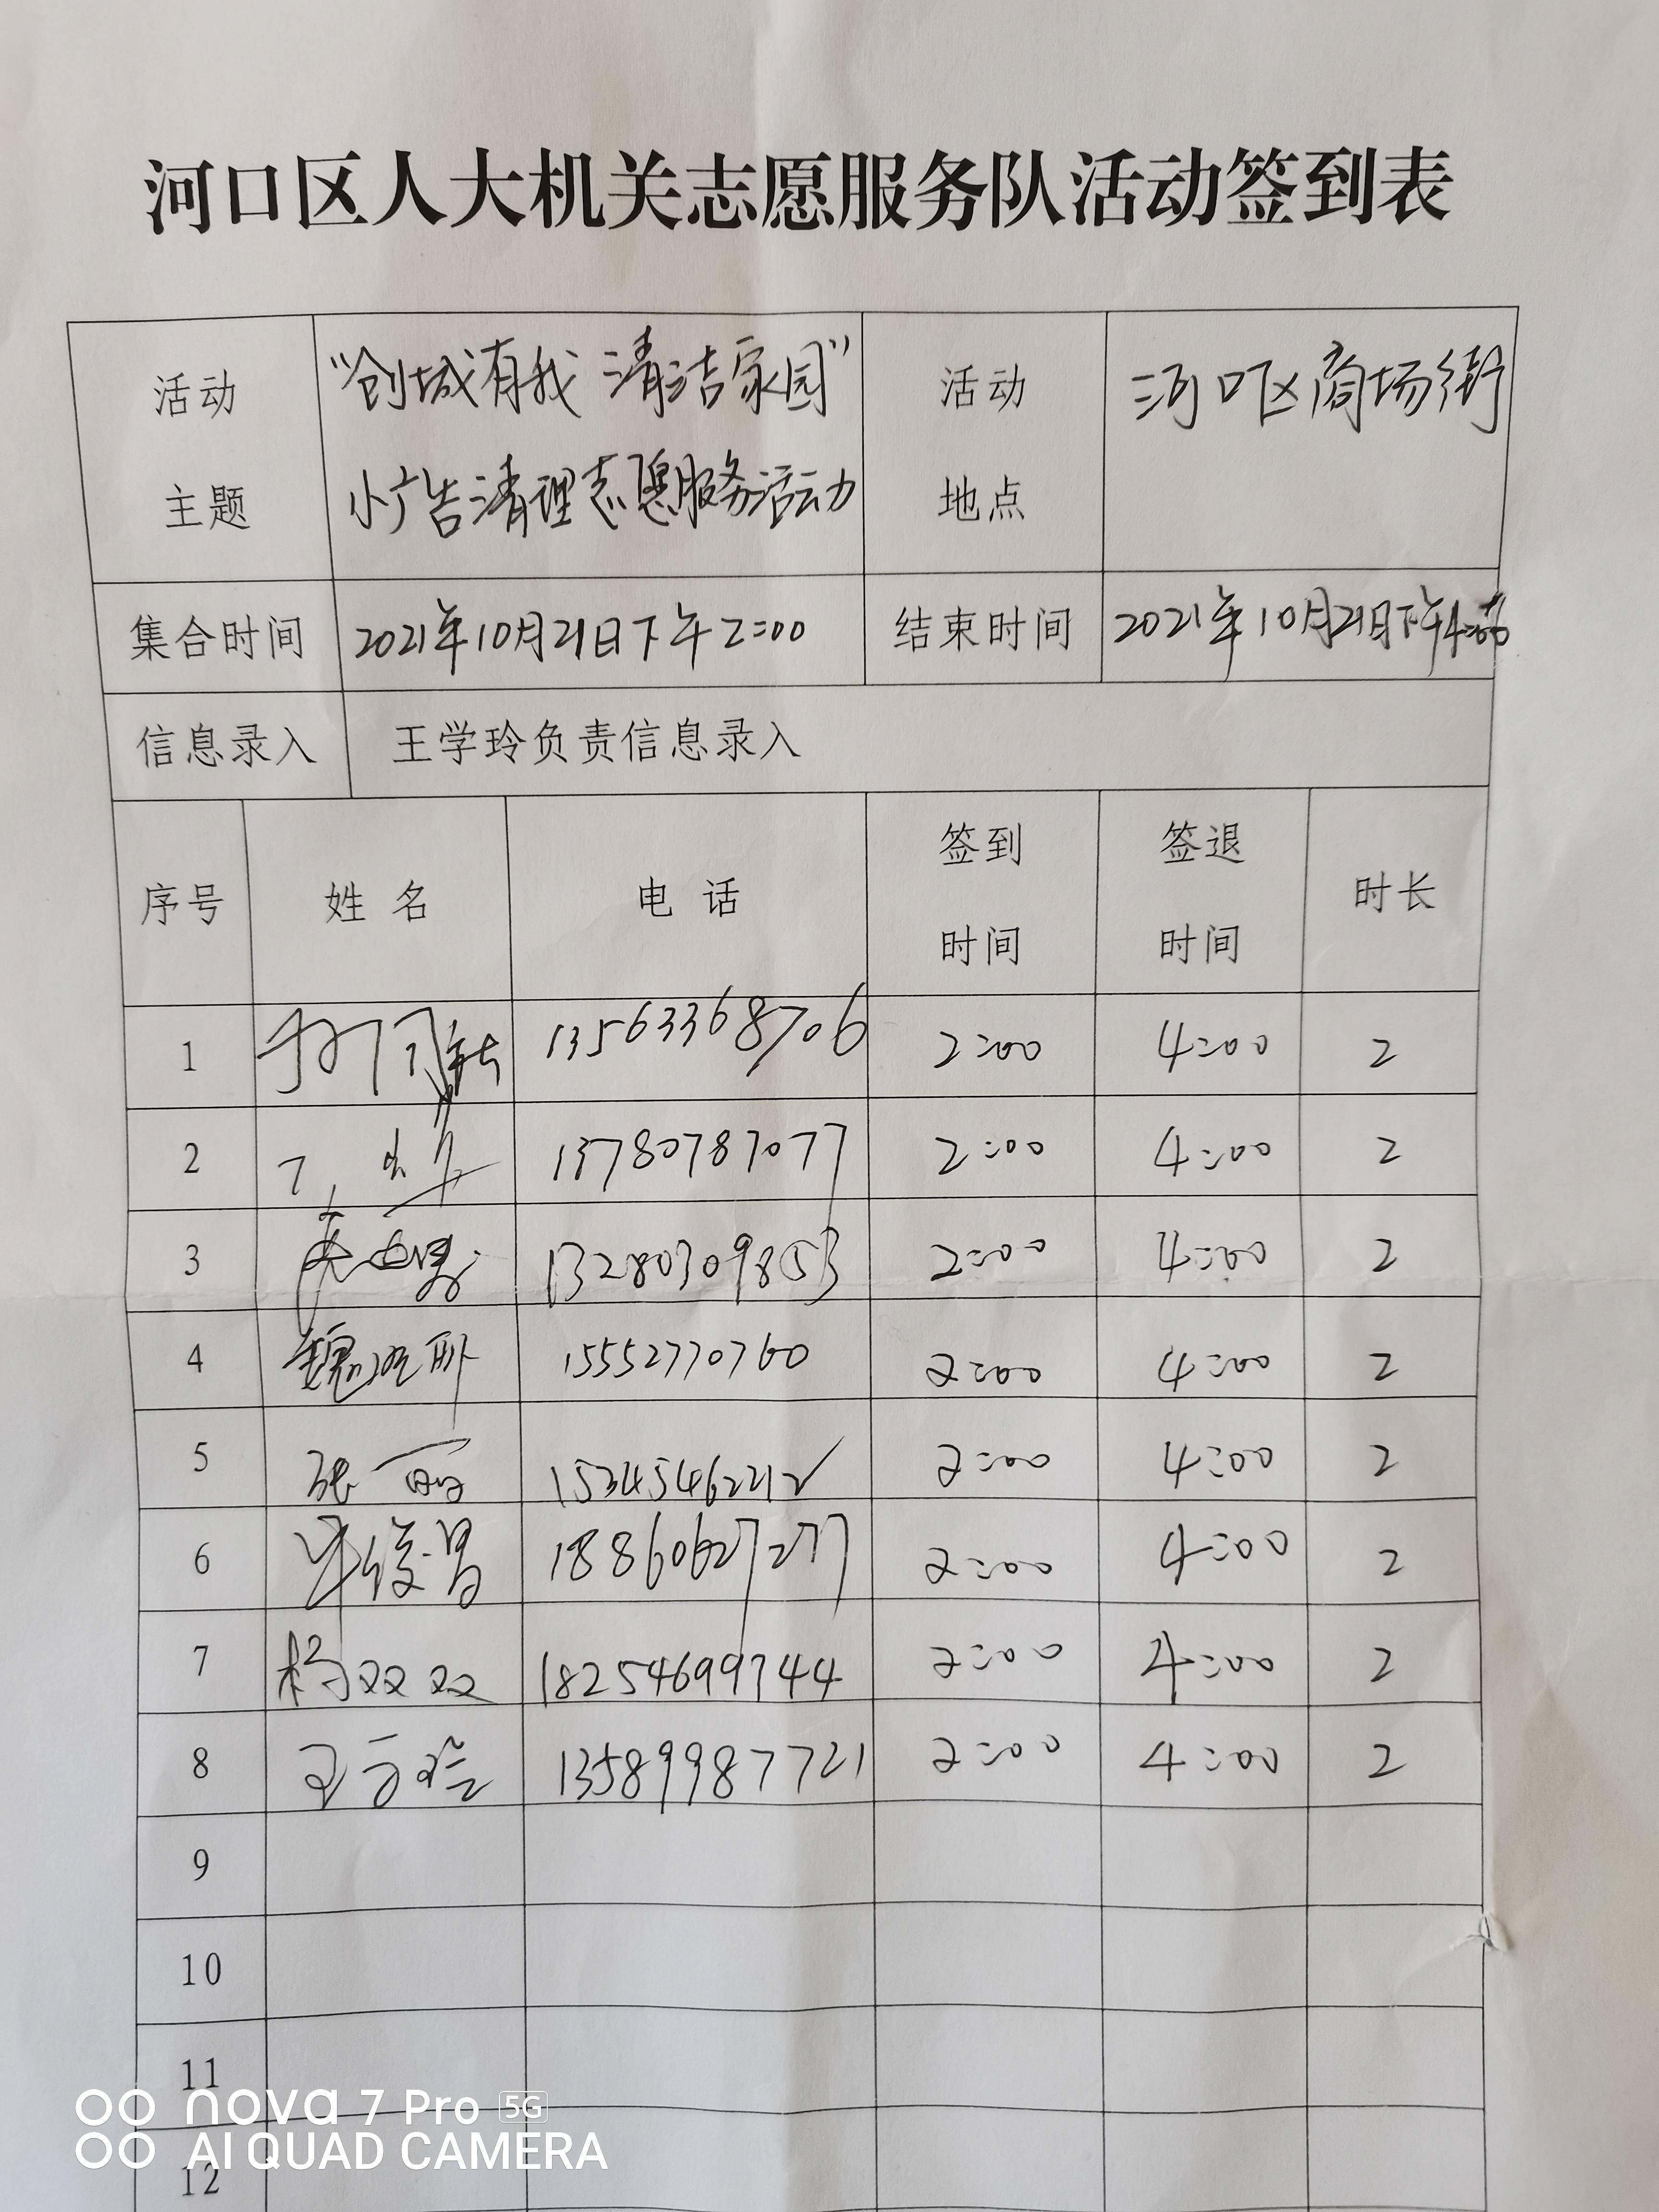 河口区人大机关志愿服务队活动签到表
活动主题 "创城有我 清洁家园" 活动地点 河口区商场街
小广告清理志愿服务活动
集合时间 2021年10月21日下午2:00 结束时间 2021年10月21日下午4:00
信息录入 王学玲负责信息录入
序号 姓名 电话 签到时间 签退时间 时长
1 13563368706 2:00 4:00 2
2 13780787077 2:00 4:00 2
3 13280309853 2:00 4:00 2
4 15552770760 2:00 4:00 2
5 张丽 15345462212 2:00 4:00 2
6 18860627277 2:00 4:00 2
7 杨双双 18254699744 2:00 4:00 2
8 13589987721 2:00 4:00 2
9
10
11
12
nova 7 Pro 5G
AI QUAD CAMERA